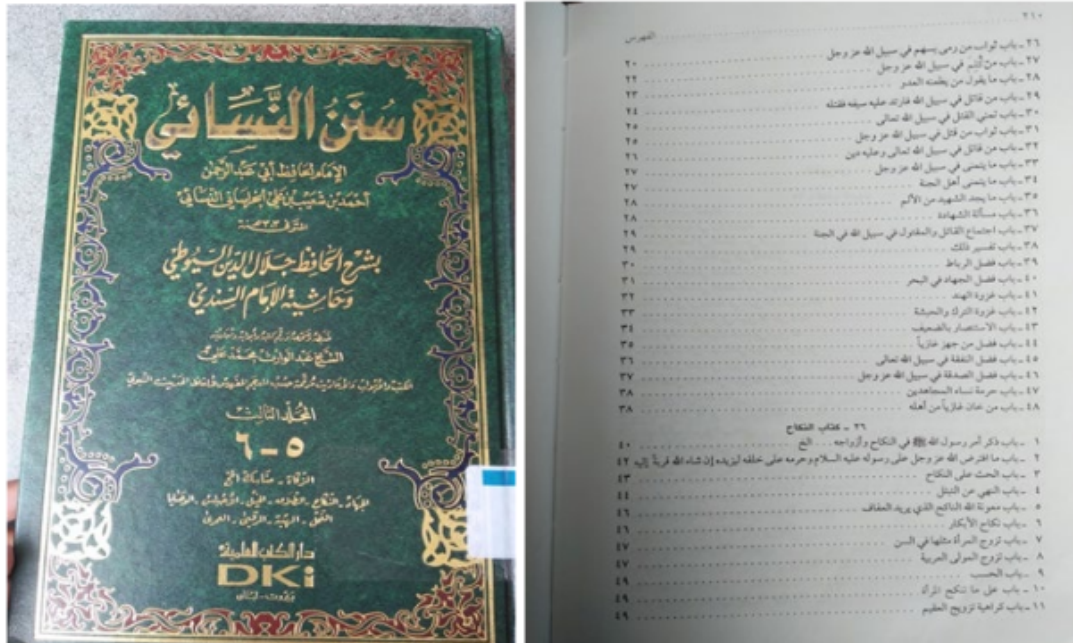 سُنَنُ النَّسَائِي
الإمام الحافظ أبي عبد الرحمن
أحمد بن شعيب بن علي الخراساني النسائي
المتوفى ٣٠٣ هـ سنة
بشرح الحافظ جلال الدين السيوطي
وحاشية الإمام السندي
الشيخ عبد الوارث محمد علي
المجلد الثالث
٥ - ٦
الزكاة - مناسك الحج
دار الكتب العلمية
DKi
بيروت - لبنان
٢١٠ الفهرس
٢٦ - باب ثواب من رمى بسهم في سبيل الله عز وجل ٢٠
٢٧ - باب من كُلِمَ في سبيل الله عز وجل ٢٢
٢٨ - باب ما يقول من يطعنه العدو ٢٣
٢٩ - باب من قاتل في سبيل الله فارتد عليه سيفه فقتله ٢٤
٣٠ - باب تمني القتل في سبيل الله تعالى ٢٥
٣١ - باب ثواب من قتل في سبيل الله عز وجل ٢٥
٣٢ - باب من قاتل في سبيل الله تعالى وعليه دين ٢٦
٣٣ - باب ما يتمنى في سبيل الله عز وجل ٢٧
٣٤ - باب ما يتمنى أهل الجنة ٢٧
٣٥ - باب ما يجد الشهيد من الألم ٢٨
٣٦ - باب مسألة الشهادة ٢٨
٣٧ - باب اجتماع القاتل والمقتول في سبيل الله في الجنة ٢٩
٣٨ - باب تفسير ذلك ٢٩
٣٩ - باب فضل الرباط ٣٠
٤٠ - باب فضل الجهاد في البحر ٣١
٤١ - باب غزوة الهند ٣٢
٤٢ - باب غزوة الترك والحبشة ٣٣
٤٣ - باب الاستنصار بالضعيف ٣٤
٤٤ - باب فضل من جهز غازياً ٣٥
٤٥ - باب فضل النفقة في سبيل الله تعالى ٣٦
٤٦ - باب فضل الصدقة في سبيل الله عز وجل ٣٧
٤٧ - باب حرمة نساء المجاهدين ٣٨
٤٨ - باب من خان غازياً من أهله ٣٨
٢٦ - كتاب النكاح
١ - باب ذكر أمر رسول الله ﷺ في النكاح وأزواجه ... الخ ٤٠
٢ - باب ما افترض الله عز وجل على رسوله عليه السلام وحرمه على خلقه ليزيده إن شاء الله قربة إليه ٤٢
٣ - باب الحث على النكاح ٤٣
٤ - باب النهي عن التبتل ٤٤
٥ - باب معونة الله الناكح الذي يريد العفاف ٤٦
٦ - باب نكاح الأبكار ٤٦
٧ - باب تزوج المرأة مثلها في السن ٤٧
٨ - باب تزوج المولى العربية ٤٧
٩ - باب الحسب ٤٩
١٠ - باب على ما تنكح المرأة ٤٩
١١ - باب كراهية تزويج العقيم ٤٩